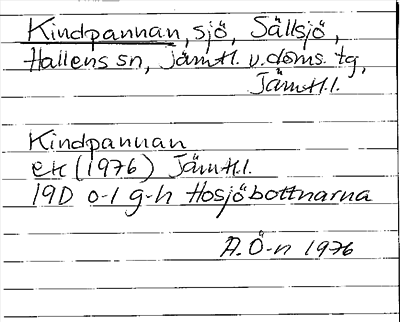 Kindpannan, sjö, Sällsjö,
Hallens sn, Jämtl. v. doms. tg,
Jämtl. l.
Kindpannan
ek (1976) Jämtl. l.
19D 0-1 g-h Hosjöbottnarna
A. Ö-n 1976